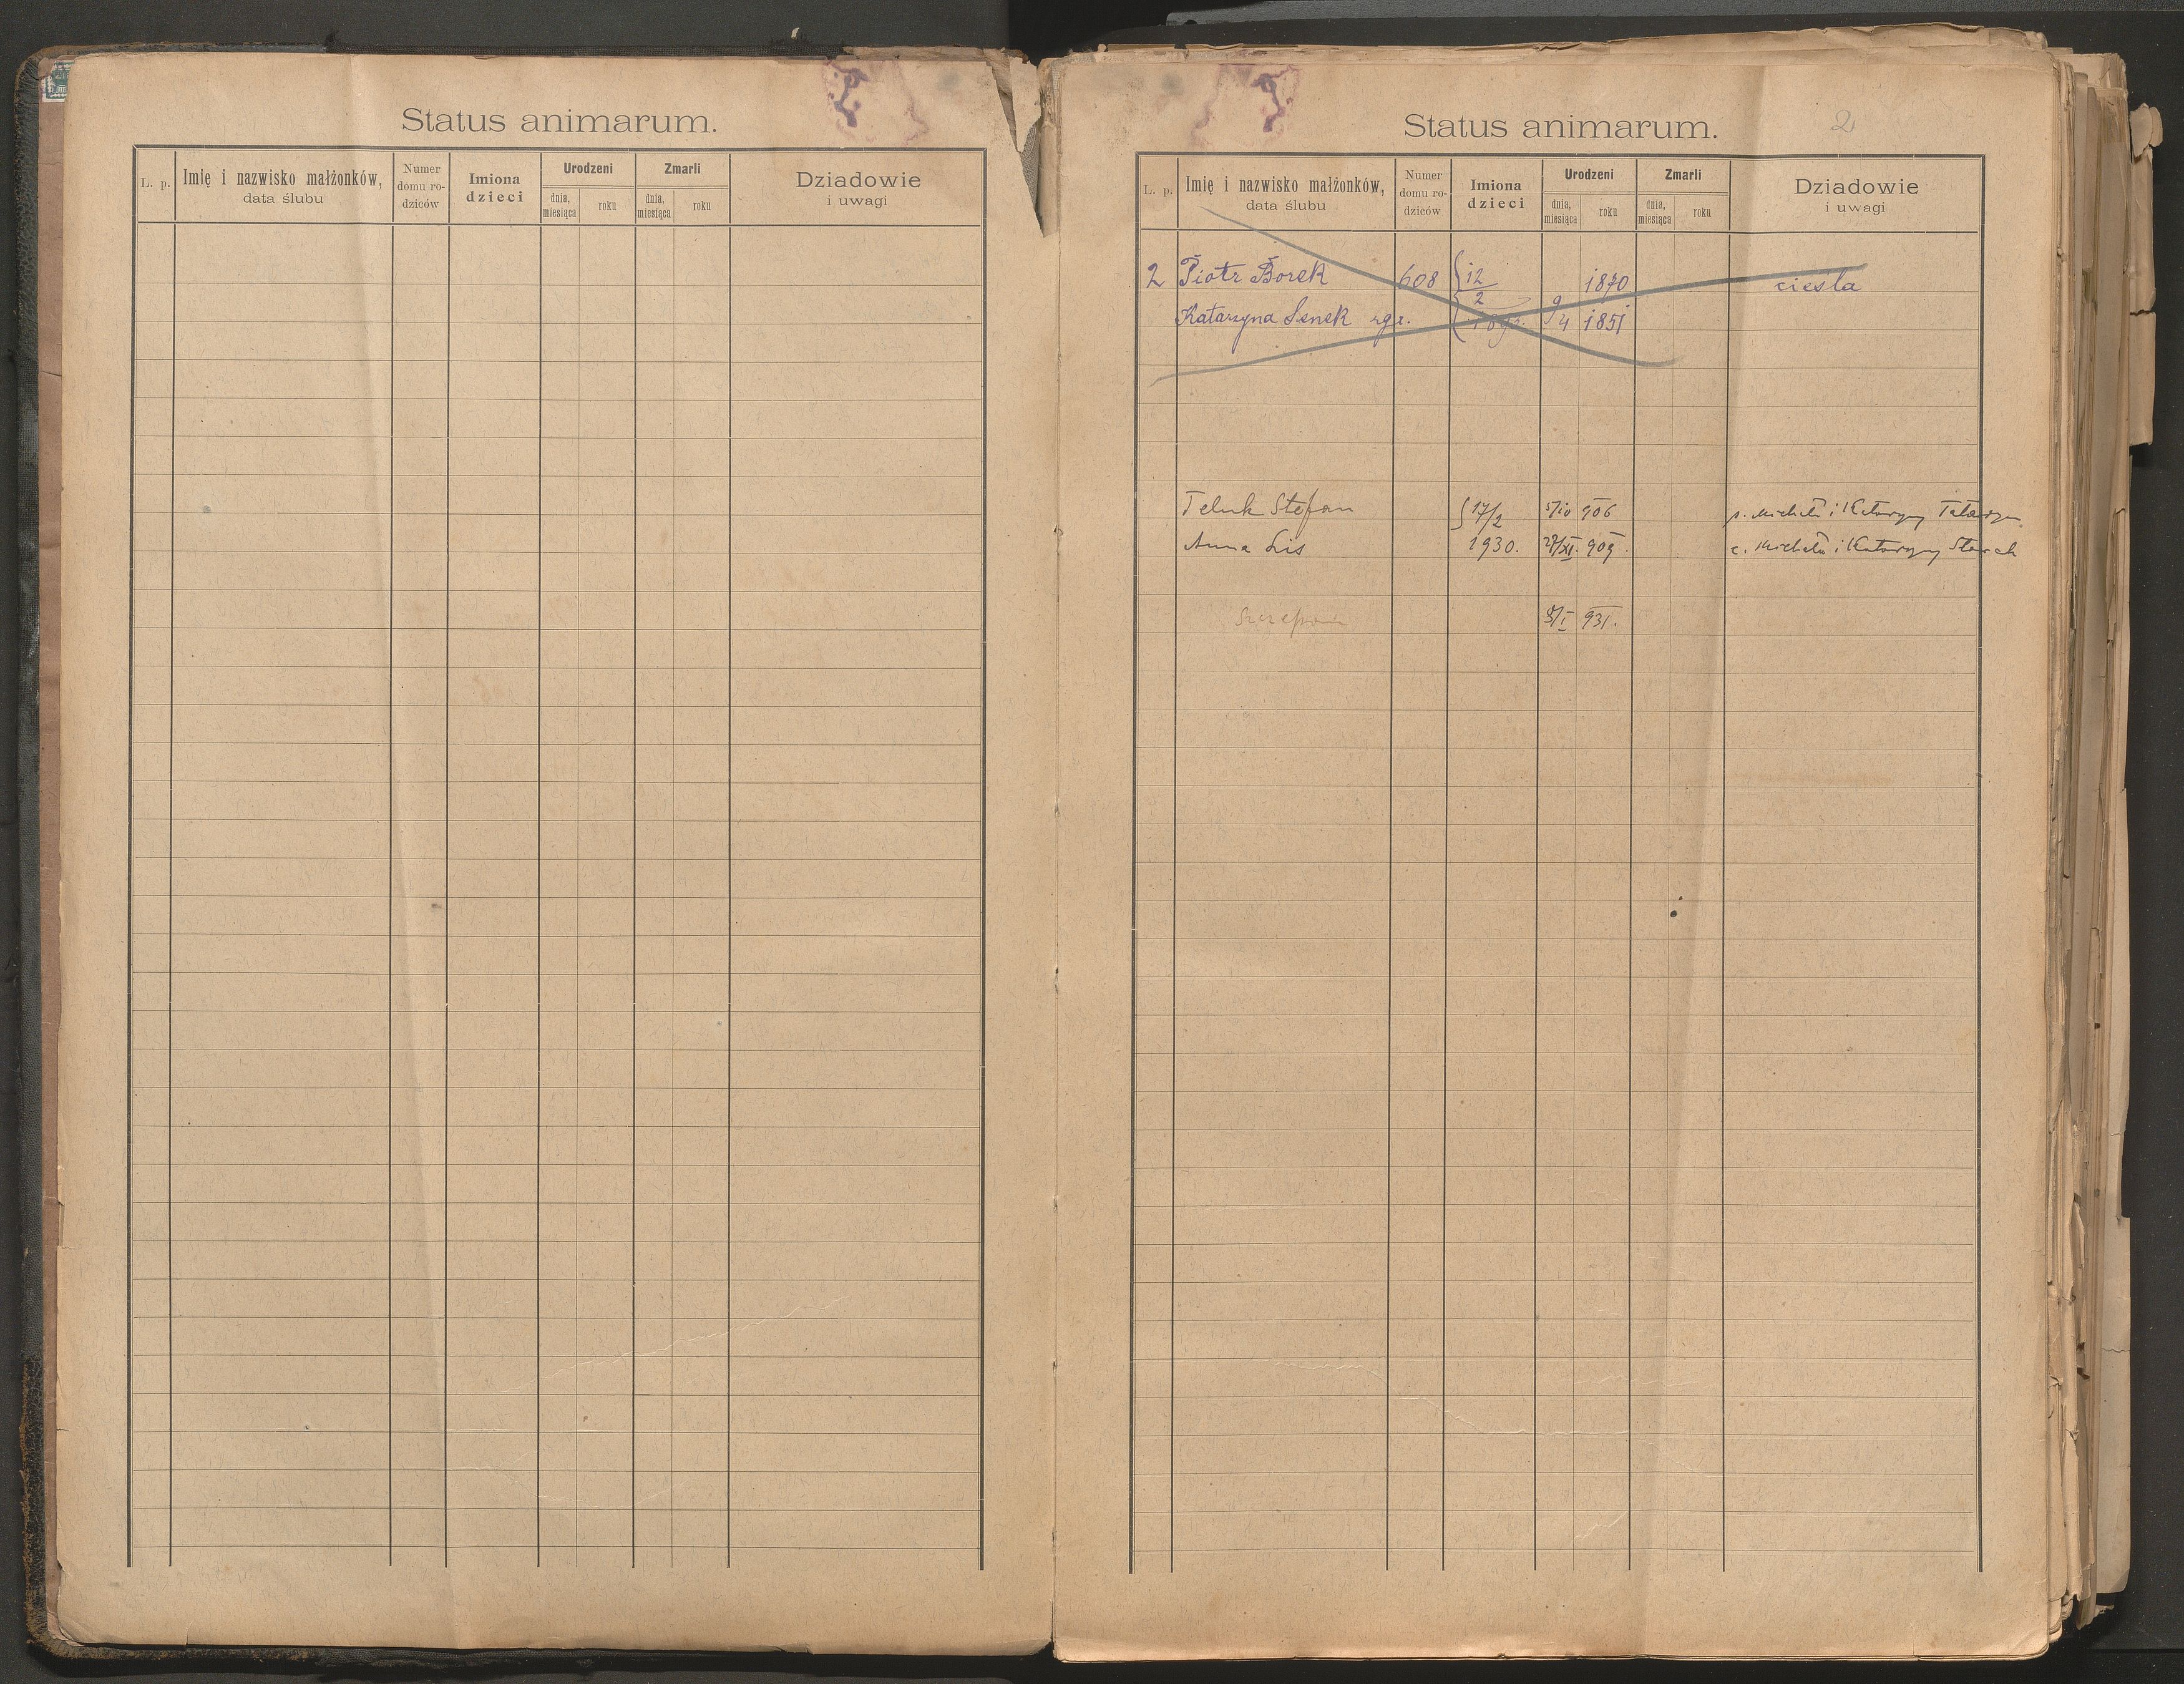 Status animarum.
L. p.
Imię i nazwisko małżonków,
data ślubu
Numer
domu ro-
dziców
Imiona
dzieci
Urodzeni
dnia,
miesiąca
roku
Zmarli
dnia,
miesiąca
roku
Dziadowie
i uwagi
Status animarum.
2
L. p.
Imię i nazwisko małżonków,
data ślubu
Numer
domu ro-
dziców
Imiona
dzieci
Urodzeni
dnia,
miesiąca
roku
Zmarli
dnia,
miesiąca
roku
Dziadowie
i uwagi
2 Piotr Borek 608 12/2 1870 cieśla
Katarzyna Senek 9/4 1851
Teluk Stefan 17/2 5/10 906 s. Michała i Katarzyny
Anna Lis 1930. 27/XI. 909. c. Michała i Katarzyny Starch
931.